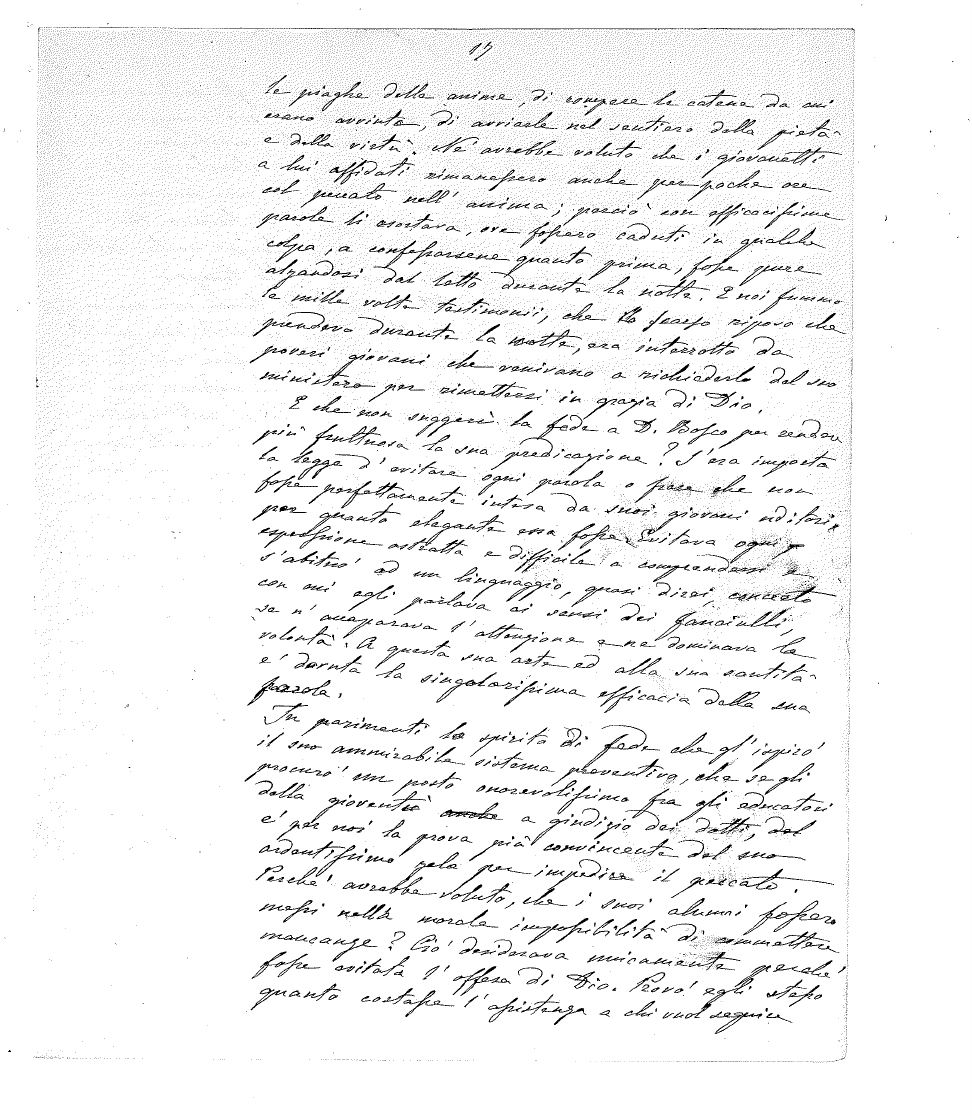 17
le piaghe delle anime, di rompere le catene da cui
erano avvinte, di avviarle nel sentiero della pietà
e della virtù. Nè avrebbe voluto che i giovanetti
a lui affidati rimanessero anche per poche ore
col peccato nell'anima; perciò con efficacissime
parole li esortava, ove fossero caduti in qualche
colpa, a confessarsene quanto prima, fosse pure
alzandosi dal letto durante la notte. E noi fummo
le mille volte testimonii, che lo scarso riposo che
prendeva durante la notte, era interrotto da
poveri giovani che venivano a richiederlo del suo
ministero per rimettersi in grazia di Dio.
E che non suggerì la fede a D. Bosco per rendere
più fruttuosa la sua predicazione? S'era imposta
la legge d'evitare ogni parola o frase che non
fosse perfettamente intesa da suoi giovani uditori,
per quanto elegante essa fosse. Evitava ogni
espressione astratta e difficile a comprendersi e
s'abituò ad un linguaggio, quasi direi, concreto
con cui egli parlava ai sensi dei fanciulli,
se n'accaparava l'attenzione e ne dominava la
volontà. A questa sua arte ed alla sua santità
è dovuta la singolarissima efficacia della sua
parola.
Fu parimenti lo spirito di fede che gl'ispirò
il suo ammirabile sistema preventivo, che se gli
procurò un posto onorevolissimo fra gli educatori
della gioventù anche a giudizio dei dotti,
è per noi la prova più convincente del suo
ardentissimo zelo per impedire il peccato.
Perchè avrebbe voluto, che i suoi alunni fossero
messi nella morale impossibilità di commettere
mancanze? Ciò desiderava unicamente perchè
fosse evitata l'offesa di Dio. Provò egli stesso
quanto costasse l'assistenza a chi vuol seguire